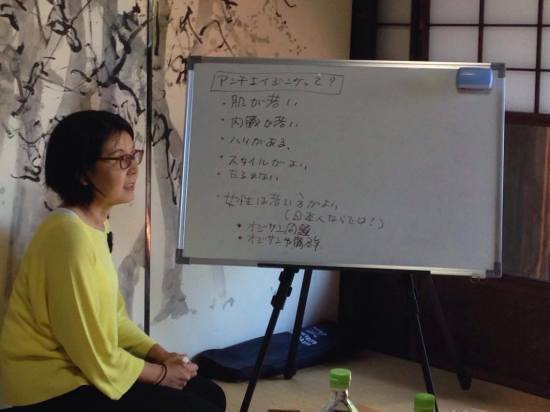 アンチエイジングって？
・肌が若い
・内臓が若い
・ハリがある、
・スタイルがよい、
・たるみない
・女性は若い方がよい
（日本人ならでは？）
・オジサン問題
・オジサン予備群